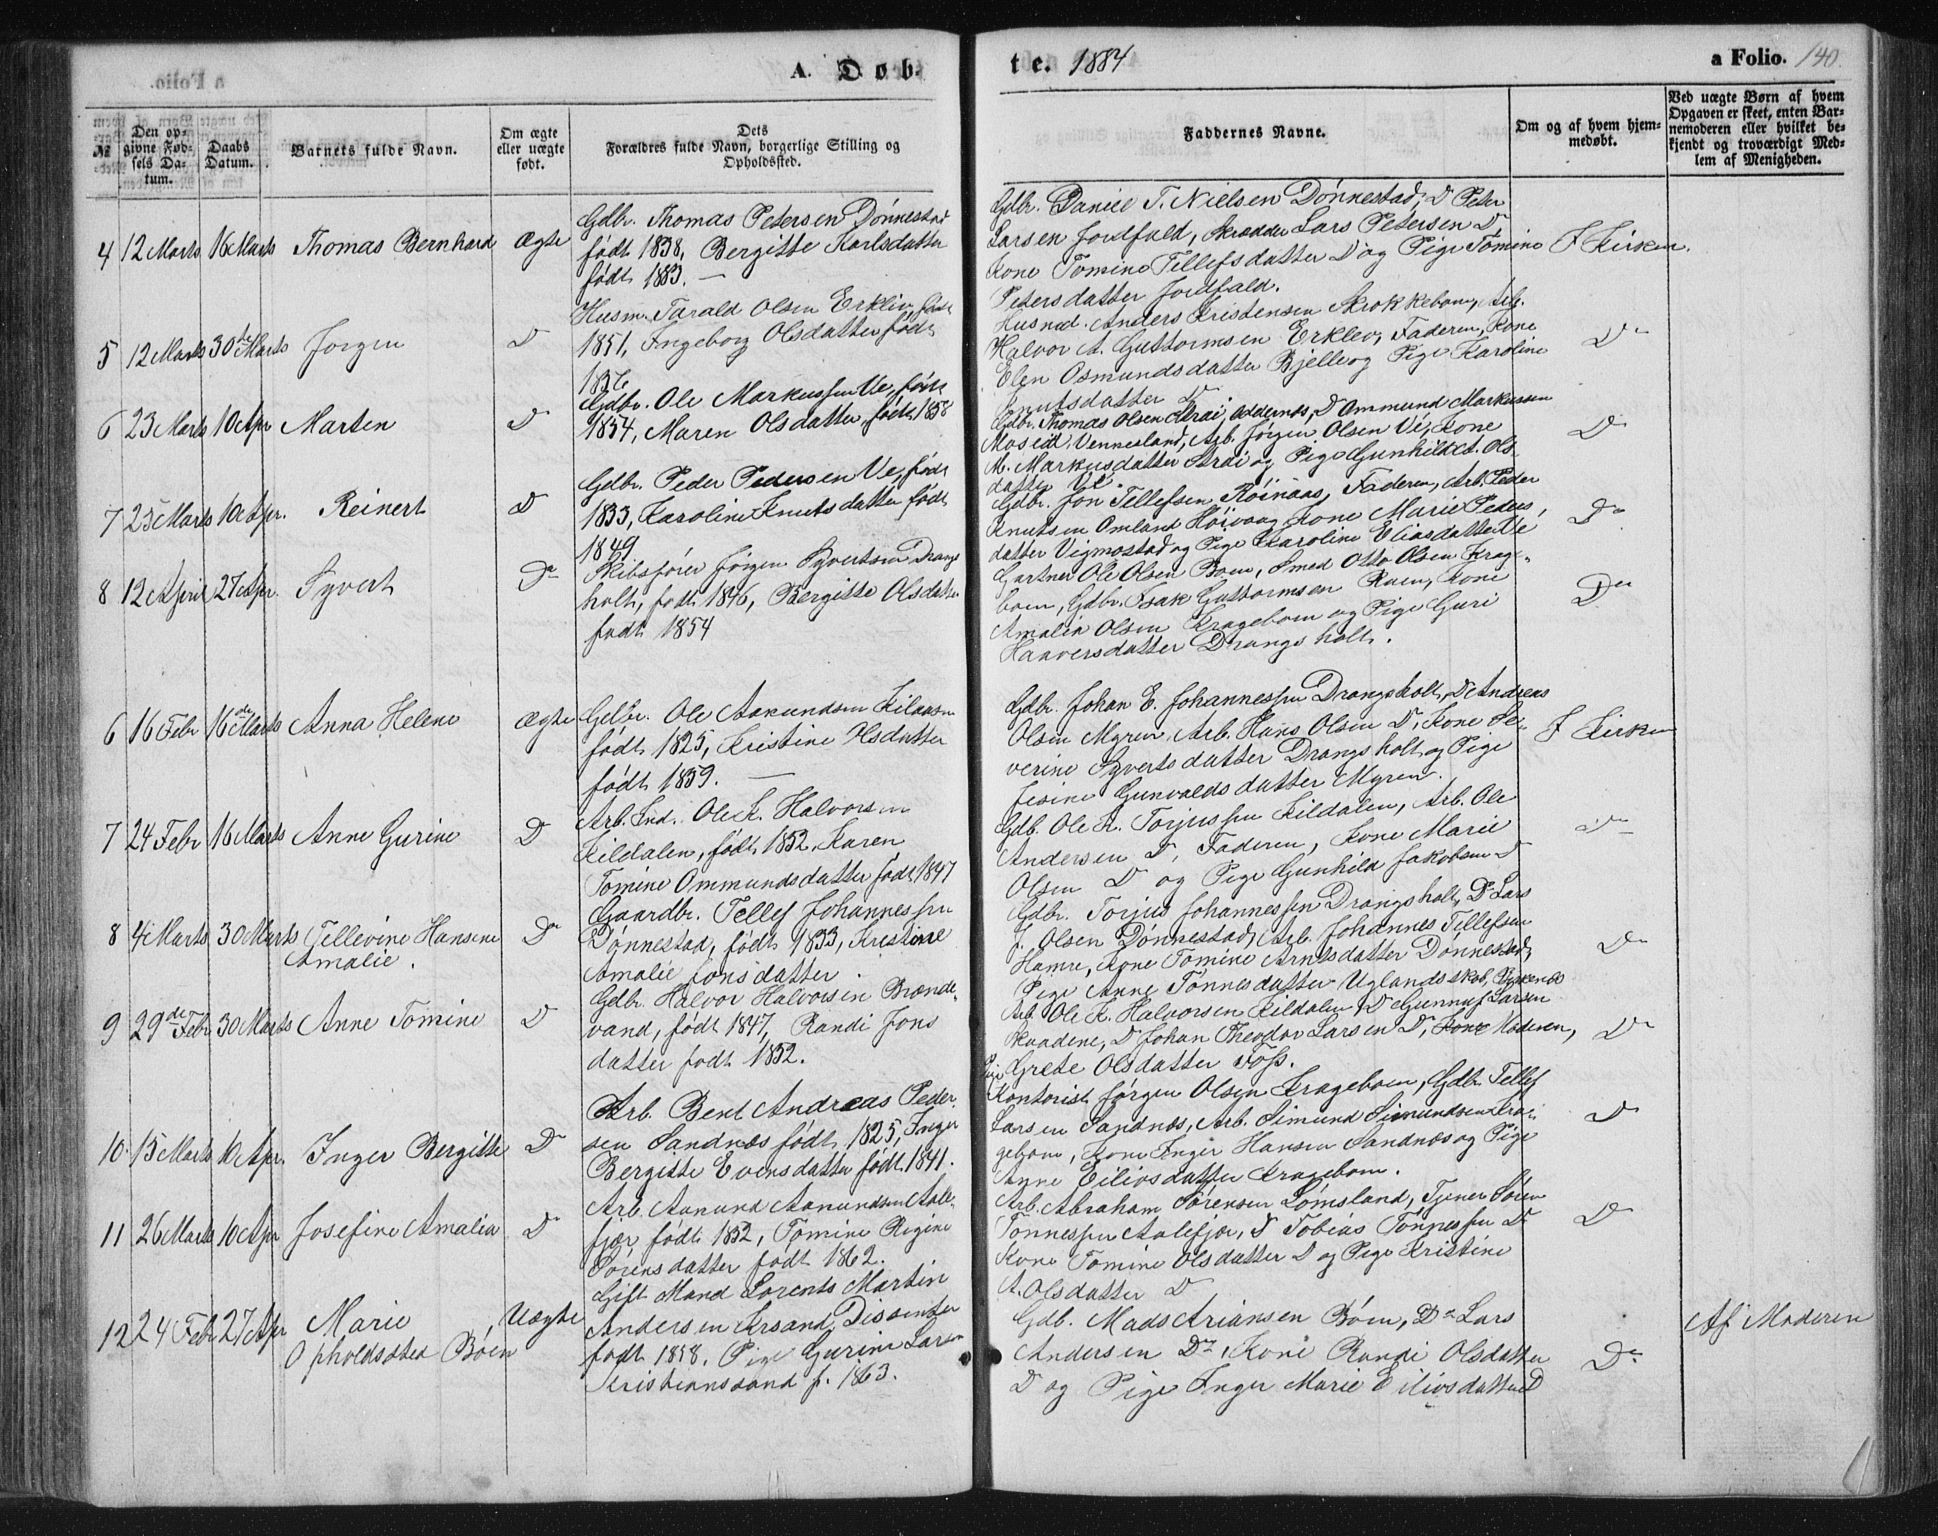 A. Døb
te. 1884
a Folio. 140.
№
Den opgivne Fødsels Datum.
Daabs Datum.
Barnets fulde Navn.
Om ægte eller uægte født.
Dets Forældres fulde Navn, borgerlige Stilling og Opholdssted.
Faddernes Navne.
Om og af hvem hjemmedøbt.
Ved uægte Børn af hvem Opgaven er skeet, enten Barnemoderen eller hvilket bekjendt og troværdigt Medlem af Menigheden.
4 12 Marts 16 Marts Thomas Bernhard Ægte
Gdbr. Thomas Petersen Dønnestad
født 1838, Bergitte Karlsdatter
født 1883. —
Gdbr. Daniel T. Nielsen Dønnestad, D Peter
Larsen Jordfald, Skrædder Lars Petersen D
Kone Tomine Tellefsdatter D og Pige Tomine
Petersdatter Jordfald.
I Kirken.
5 12 Marts 30de Marts Jørgen D
Husm. Tarald Olsen Erklev, født
1851, Ingeborg Olsdatter født
1856
Husmd. Anders Kristensen Skrokkeboen, Arb.
Halvor A. Guttormsen Erklev, Faderen, Kone
Elen Osmundsdatter Bjelle og Pige Karoline
Knutsdatter D
Do
6 23 Marts 10 Apr Marten D
Gdbr. Ole Markussen Ve, født
1854, Maren Olsdatter, født 1858
Gdbr. Thomas Olsen Strai, Oddernes, D Ommund Markussen
Moseid, Vennesland, Arb. Jørgen Olsen Ve, Kone
M. Markusdatter Strai og Pige Gunhild A. Olsdatter
Ve.
Do
7 25 Marts 10 Apr. Reinert D
Gdbr. Peder Pedersen Ve, født
1833, Karoline Knutsdatter født
1849
Gdbr. Jon Tellefsen Røinaas, Faderen, Arb. Peder
Knutsen Omland Høivaag, Kone Marie Pedersdatter
Vigmostad og Pige Karoline Eliasdatter Ve
Do
8 12 April 27 Apr. Syvert Do
Skibsfører Jørgen Syvertsen Drangsholt,
født 1846, Bergitte Olsdatter
født 1854
Gartner Ole Olsen Boen, Smed Otto Olsen Krageboen,
Gdbr. Isak Guttormsen Roen, Kone
Amalia Olsen Krageboen og Pige Guri
Haaversdatter Drangsholt.
Do
6 16 Febr 16de Marts Anna Helene Ægte
Gdbr. Ole Aanundsen Kilaasen
født 1825, Kristine Olsdatter
født 1839. —
Gdbr. Johan E. Johannessen Drangsholt, D Andreas
Olsen Myren, Arb. Hans Olsen D, Kone Severine
Syvertsdatter Drangsholt og Pige
Jesine Gunvaldsdatter Myren.
I Kirken
7 24 Febr 16 Marts Anne Gurine D
Arb. Ind. Ole K. Halvorsen
Kildalen, født 1852, Karen
Tomine Ommundsdatter født 1847
Gdb. Ole K. Torjussen Kildalen, Arb. Ole
Andersen D, Faderen, Kone Marie
Olsen D og Pige Gunhild Jakobsen D
Do
8 4 Marts 30 Marts Tellevine Hansine Do
Amalie.
Gaardbr. Tellef Johannessen
Dønnestad, født 1833, Kristine
Amalie Jonsdatter.
Gdbr. Torjus Johannessen Drangsholt, D Lars
J. Olsen Dønnestad, Arb. Johannes Tellefsen
Hamre, Kone Tomine Arnesdatter Dønnestad,
Pige Anne Tønnesdatter Uglandsskob,
Do
9 29de Febr 30 Marts Anne Tomine D
Gdbr. Halvor Halvorsen Brændevand,
født 1847, Randi Jonsdatter
født 1852.
Arb. Ole K. Halvorsen Kildalen, D Gunnuf Larsen
Skaadene, D Johan Theodor Larsen D, Kone Moderen,
Pige Grete Olsdatter Foss.
Do
10 15 Marts 10 Apr. Inger Bergitte Do
Arb. Bent Andreas Pedersen
Sandnæs født 1825, Inger
Bergitte Evensdatter født 1841.
Kontorist Jørgen Olsen Krageboen, Gdbr. Tellef
Larsen Sandnæs, Arb. Simund Simundsen Krageboen,
Kone Inger Hansen Sandnæs og Pige
Anne Eilivsdatter Krageboen.
D
11 26 Marts 10 Apr Josefine Amalia D
Arb. Aanund Aanundsen Aalefjær
født 1852, Tomine Regine
Sørensdatter født 1862.
Arb. Abraham Sørensen Lømsland, Tjener Søren
Tønnessen Aalefjær, D Tobias Tønnessen D
Kone Tomine Olsdatter D og Pige Kristine
A. Olsdatter D
D
12 24 Febr 27 Apr Marie Uægte
Opholdssted Bøen
Gift Mand Lorents Martin
Andersen Krsand, Dissenter
født 1858. Pige Gurine Larsen
Kristianssand f. 1863.
Gdb. Mads Ariansen Bøen, Do Lars
Andersen Do, Kone Randi Olsdatter
D og Pige Inger Marie Eilivsdatter D
Do
Af Moderen